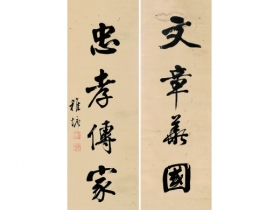 文章華國
忠孝傳家